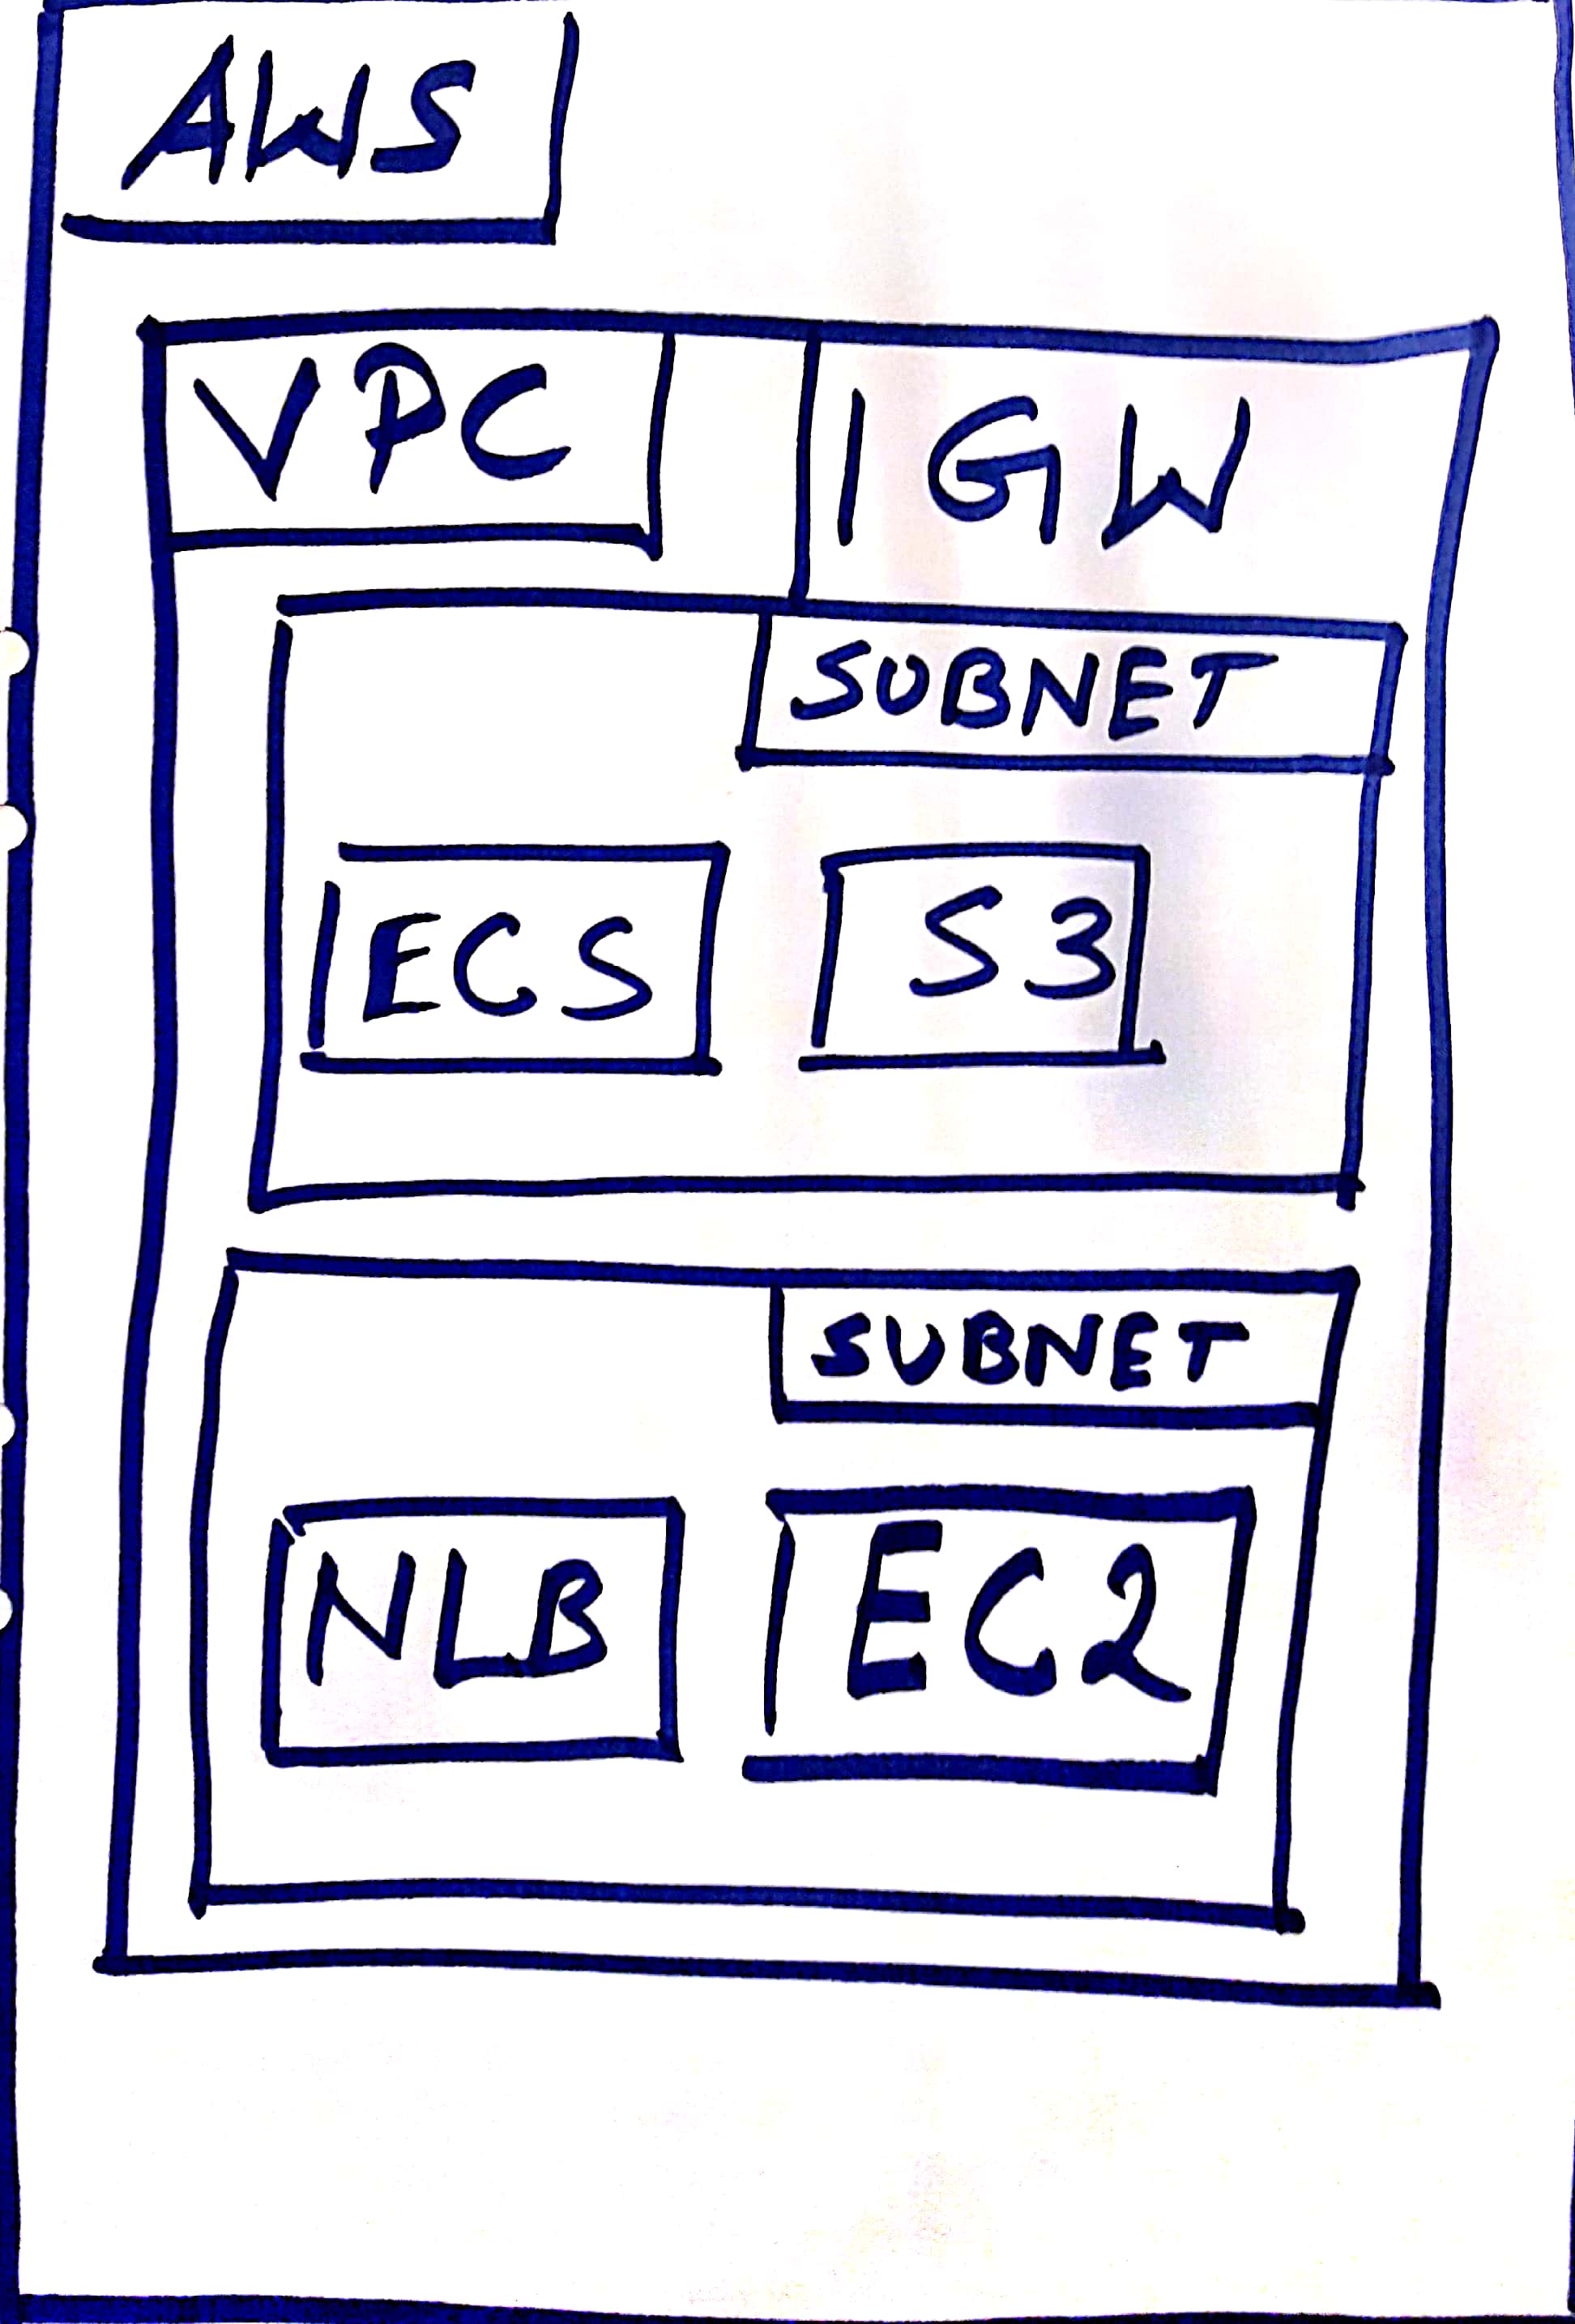 AWS
VPC
IGW
SUBNET
ECS
S3
SUBNET
NLB
EC2